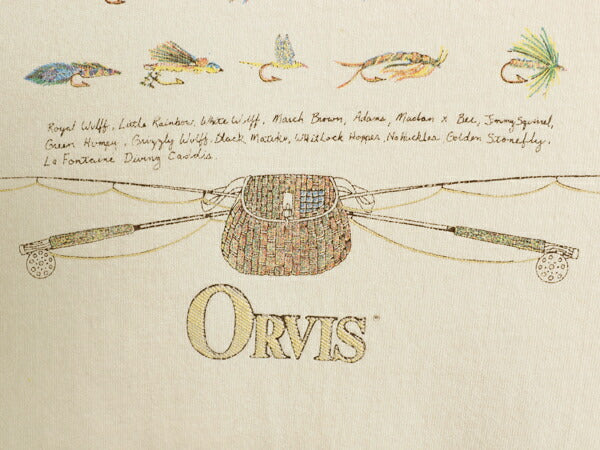 Royal Wulff, Little Rainbow, White Wulff, March Brown, Adams, Madam X Bee, Jimmy Squirrel,
Green Humpy, Grizzly Wulff, Black Matuka, Whitlock Hopper, Nohuckles Golden Stonefly,
La Fontaine Diving Caddis.
ORVIS